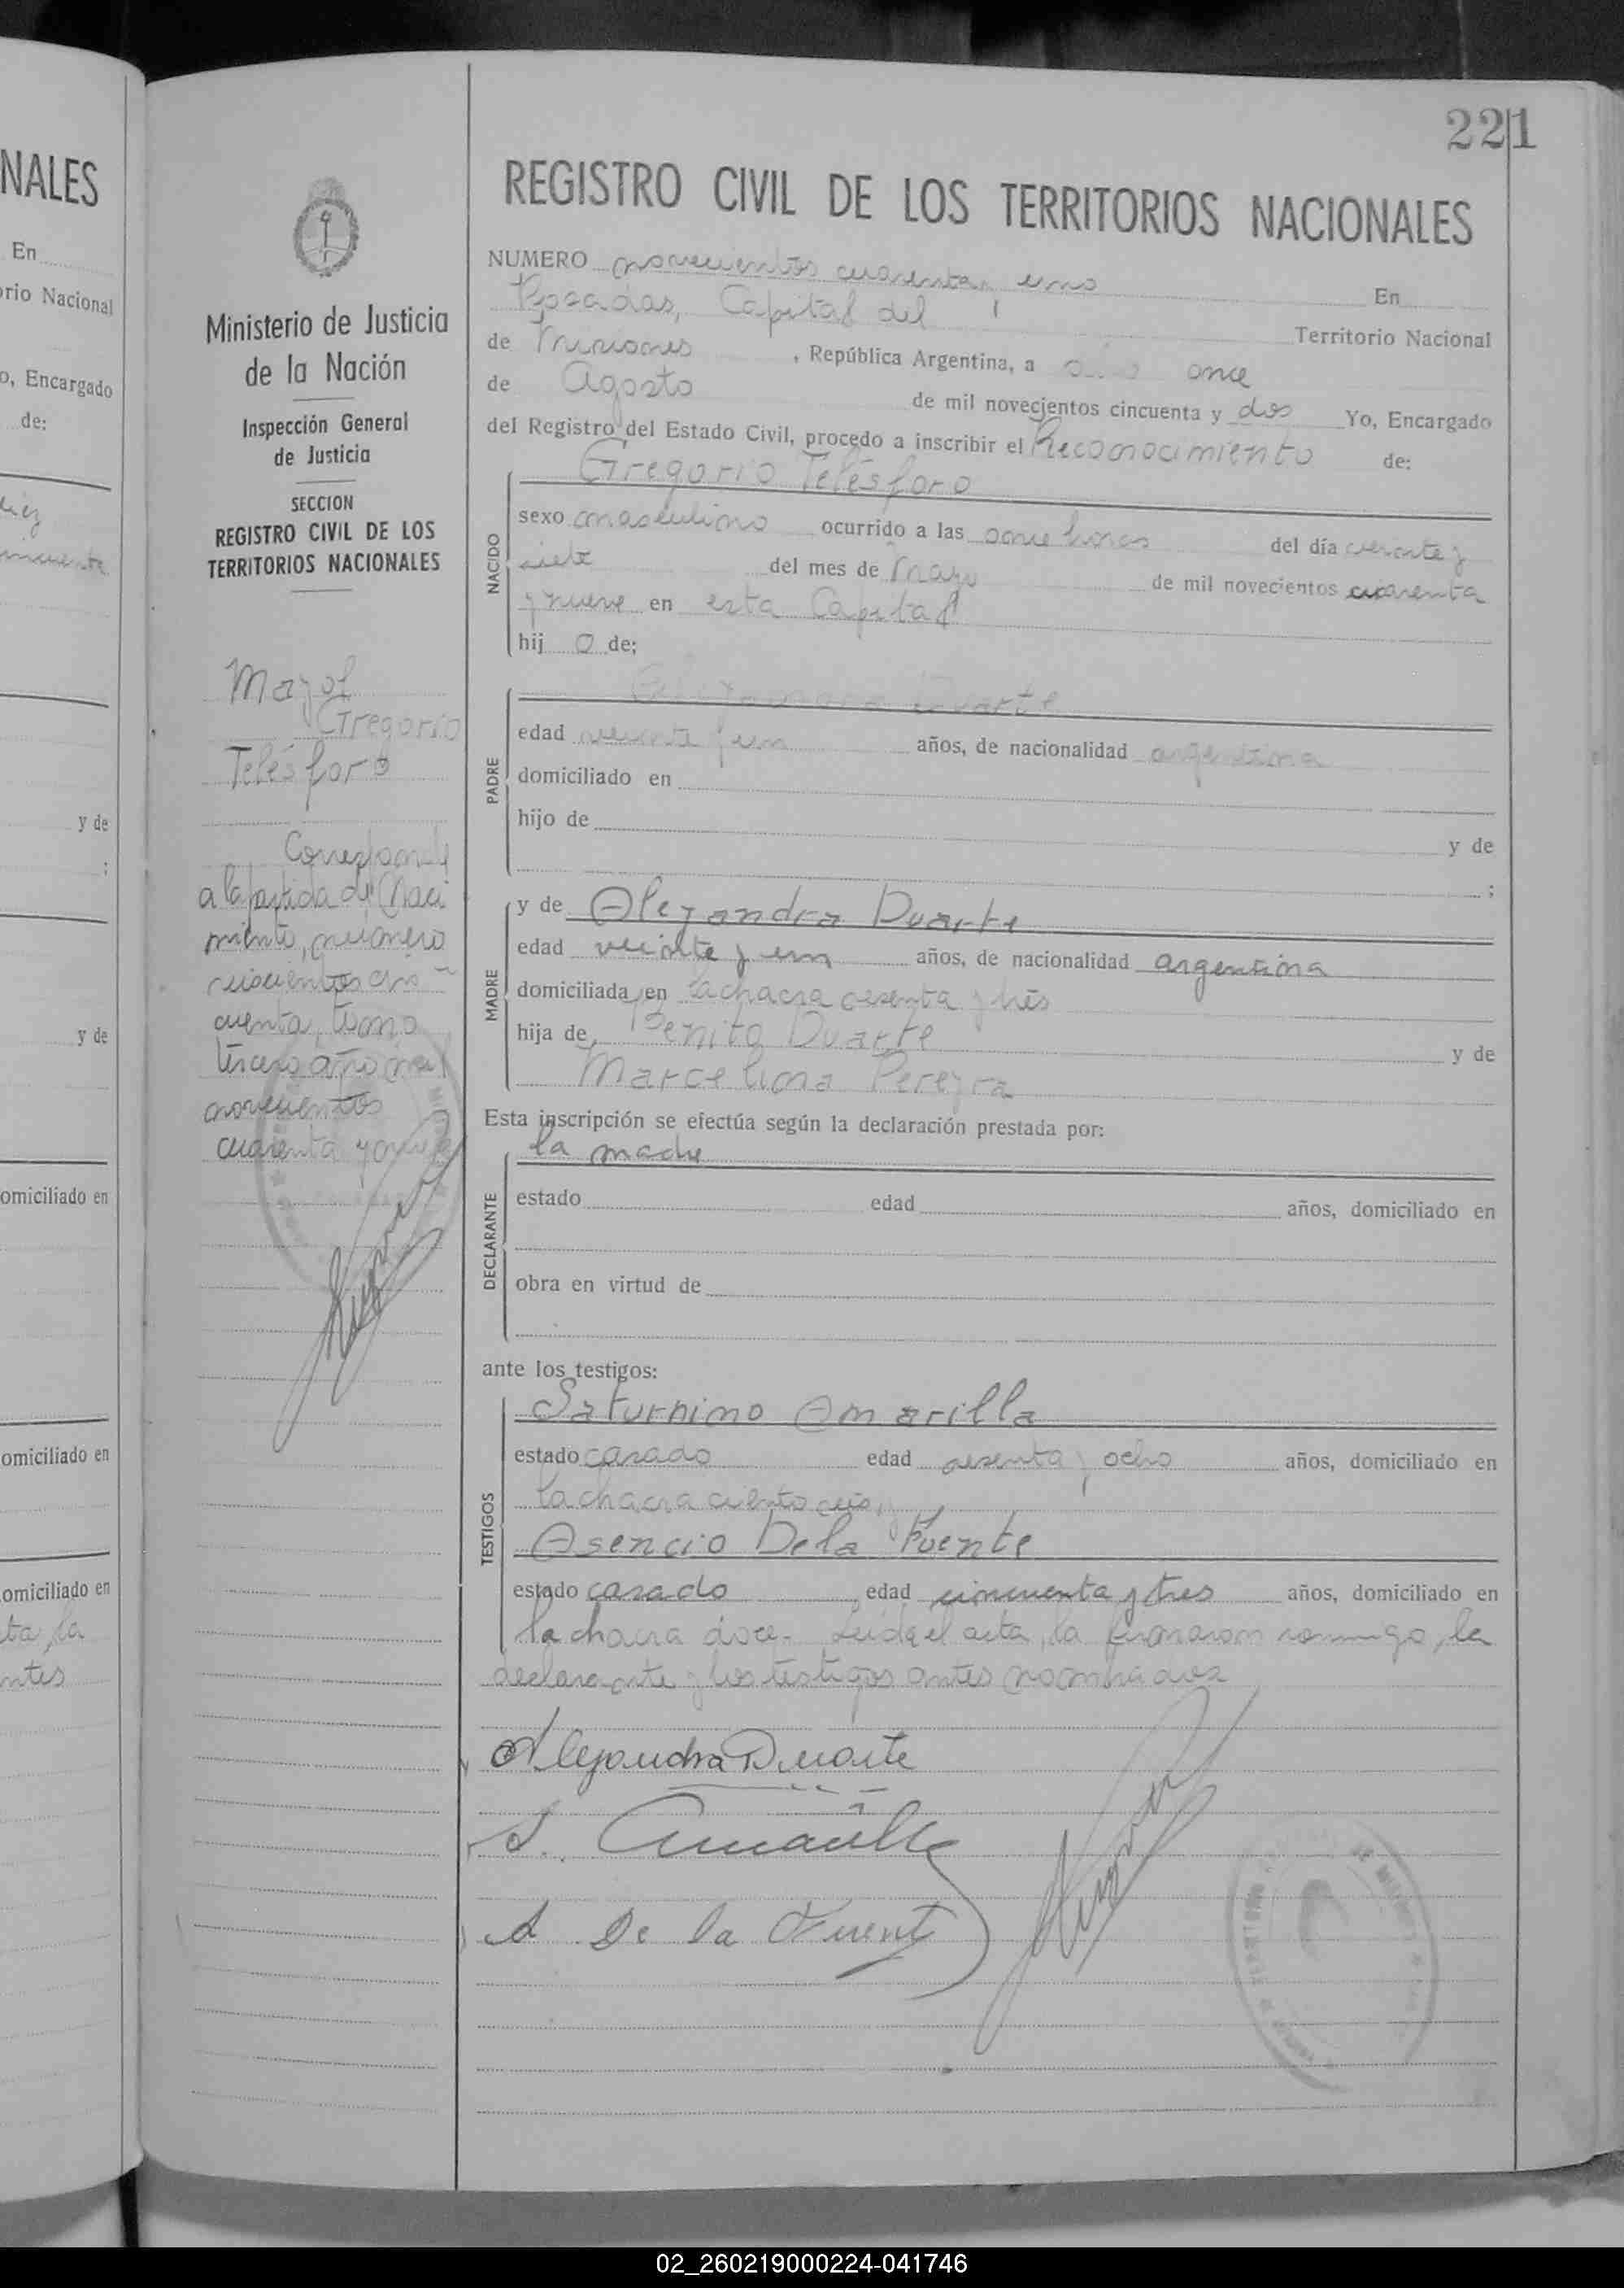 221
NALES
En
orio Nacional
o, Encargado
de:
y de
;
y de
omiciliado en
omiciliado en
omiciliado en
ta, la
ntes
Ministerio de Justicia
de la Nación
Inspección General
de Justicia
SECCION
REGISTRO CIVIL DE LOS
TERRITORIOS NACIONALES
Mayol
Gregorio
Telésforo
Corresponde
a la partida de Naci
miento, número
seiscientos cin-
cuenta, tomo
tercero año mil
novecientos
cuarenta y nueve
REGISTRO CIVIL DE LOS TERRITORIOS NACIONALES
NUMERO novecientos cuarenta y uno En
Posadas, Capital del Territorio Nacional
de Misiones, República Argentina, a once
de Agosto de mil novecientos cincuenta y dos Yo, Encargado
del Registro del Estado Civil, procedo a inscribir el Reconocimiento de:
Gregorio Telésforo
NACIDO
sexo masculino ocurrido a las once horas del día veinte y
siete del mes de Mayo de mil novecientos cuarenta
y nueve en esta Capital
hij o de;
PADRE
Alejandra Duarte
edad veinte y un años, de nacionalidad argentina
domiciliado en
hijo de y de
;
MADRE
y de Alejandra Duarte
edad veinte y un años, de nacionalidad argentina
domiciliada en la chacra sesenta y tres
hija de Benito Duarte y de
Marcelina Pereyra
Esta inscripción se efectúa según la declaración prestada por:
la madre
DECLARANTE
estado edad años, domiciliado en
obra en virtud de
ante los testigos:
Saturnino Amarilla
TESTIGOS
estado casado edad sesenta y ocho años, domiciliado en
la chacra ciento seis, y
Asencio De la Fuente
estado casado edad cincuenta y tres años, domiciliado en
la chacra doce.- Leida el acta, la firmaron conmigo, la
declarante y los testigos antes nombrados
Alejandra Duarte
S. Amarilla
A De la Fuente
02_260219000224-041746